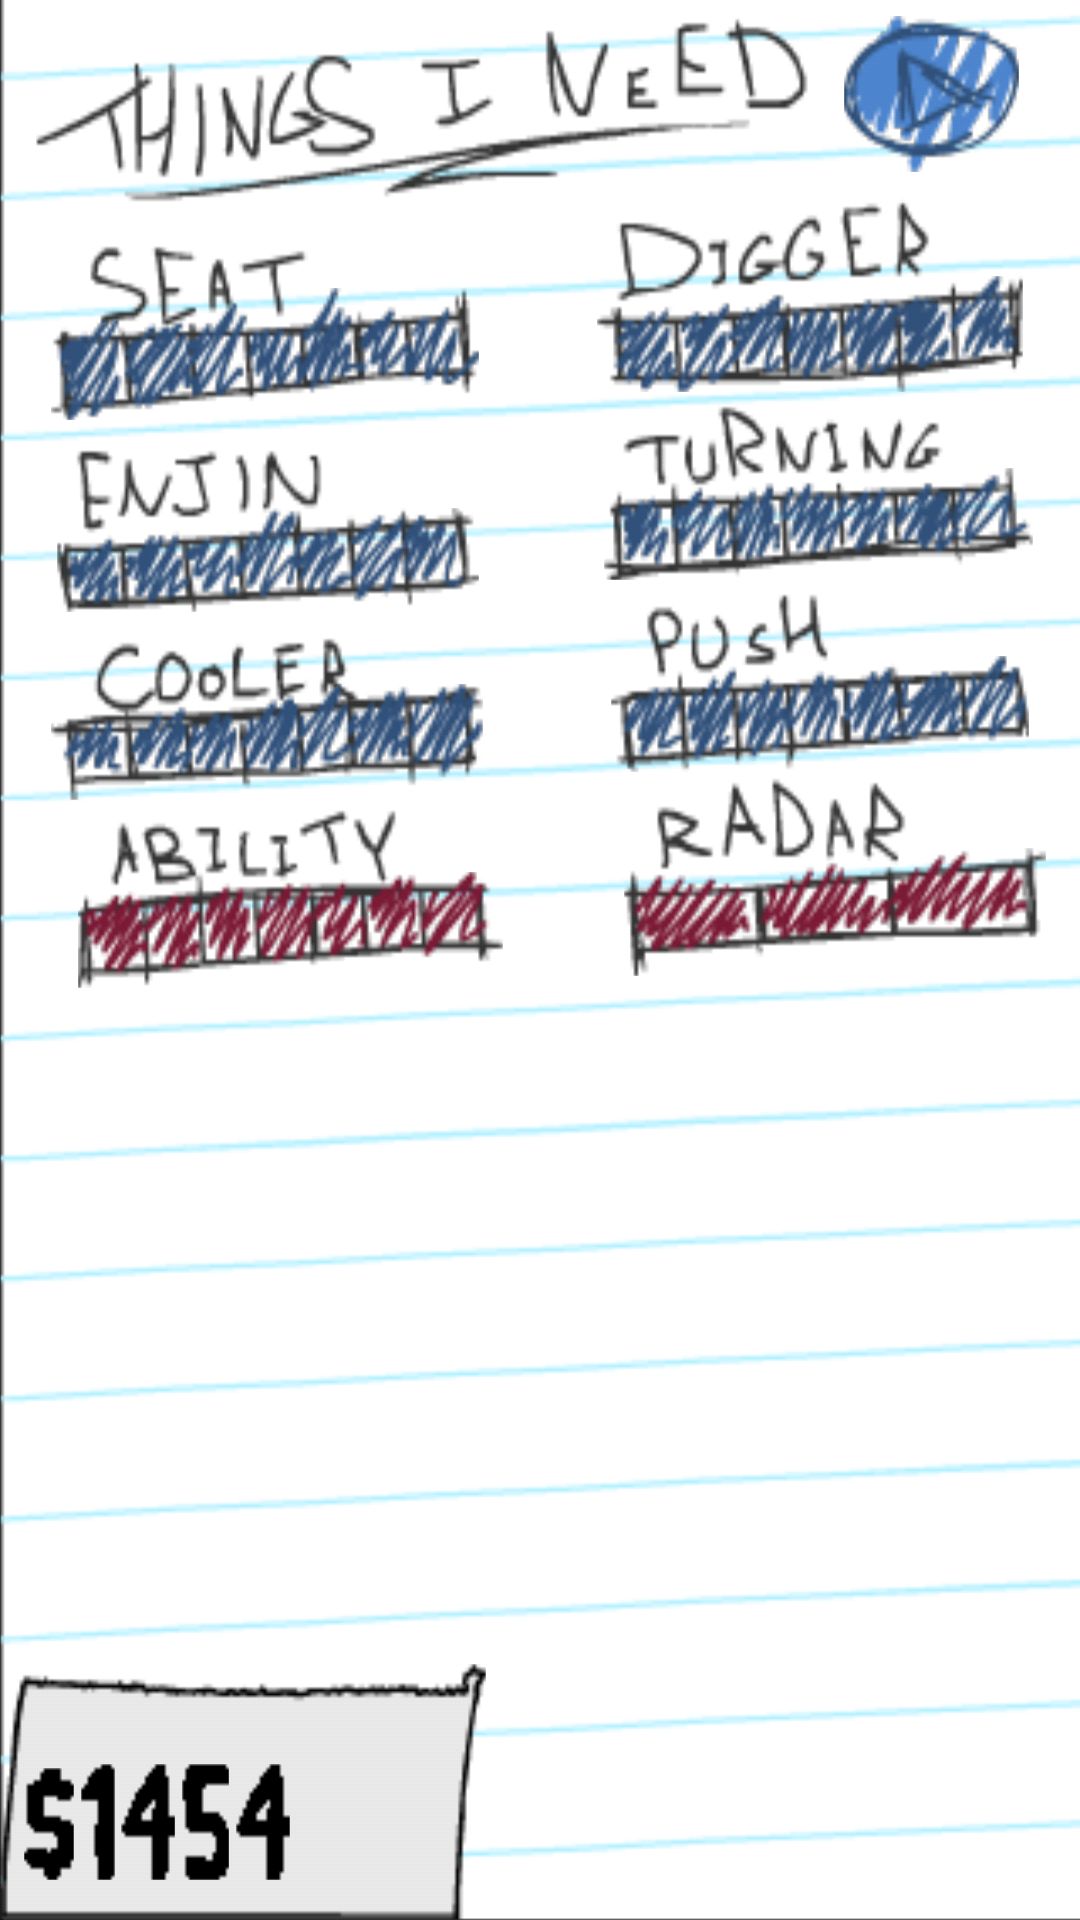 THINGS I NEED
SEAT
DIGGER
ENJIN
TURNING
COOLER
PUSH
ABILITY
RADAR
$1454